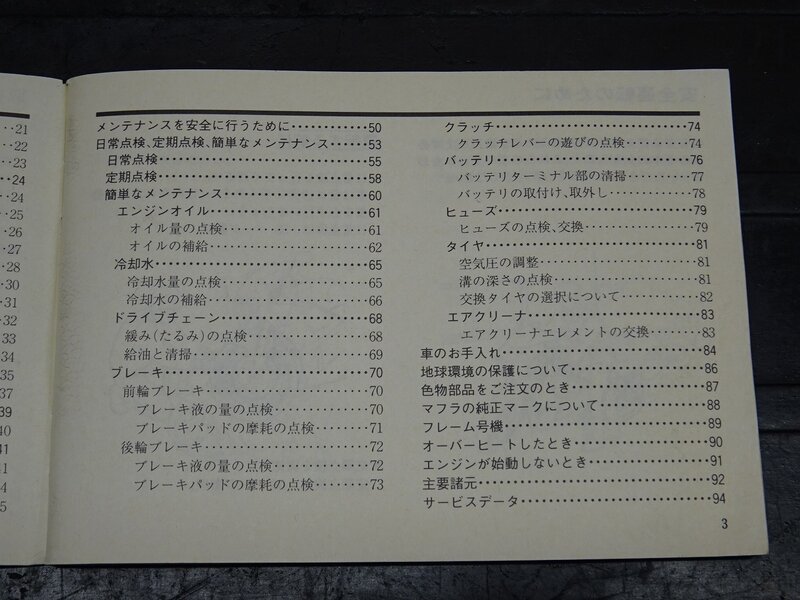 ‥21
‥22
‥23
‥24
‥24
‥25
‥26
‥27
‥28
‥30
‥31
‥32
‥33
‥34
‥35
‥37
39
40
41
41
4
5
メンテナンスを安全に行うために‥‥‥‥‥‥50
日常点検、定期点検、簡単なメンテナンス‥‥‥53
日常点検‥‥‥‥‥‥‥‥‥‥‥‥‥55
定期点検‥‥‥‥‥‥‥‥‥‥‥‥‥58
簡単なメンテナンス‥‥‥‥‥‥‥‥‥60
エンジンオイル‥‥‥‥‥‥‥‥‥‥61
オイル量の点検‥‥‥‥‥‥‥‥‥61
オイルの補給‥‥‥‥‥‥‥‥‥‥62
冷却水‥‥‥‥‥‥‥‥‥‥‥‥‥65
冷却水量の点検‥‥‥‥‥‥‥‥‥65
冷却水の補給‥‥‥‥‥‥‥‥‥‥66
ドライブチェーン‥‥‥‥‥‥‥‥‥68
緩み(たるみ)の点検‥‥‥‥‥‥‥68
給油と清掃‥‥‥‥‥‥‥‥‥‥‥69
ブレーキ‥‥‥‥‥‥‥‥‥‥‥‥‥70
前輪ブレーキ‥‥‥‥‥‥‥‥‥‥70
ブレーキ液の量の点検‥‥‥‥‥‥70
ブレーキパッドの摩耗の点検‥‥‥71
後輪ブレーキ‥‥‥‥‥‥‥‥‥‥72
ブレーキ液の量の点検‥‥‥‥‥‥72
ブレーキパッドの摩耗の点検‥‥‥73
クラッチ‥‥‥‥‥‥‥‥‥‥‥‥‥74
クラッチレバーの遊びの点検‥‥‥‥74
バッテリ‥‥‥‥‥‥‥‥‥‥‥‥‥76
バッテリターミナル部の清掃‥‥‥‥77
バッテリの取付け、取外し‥‥‥‥‥78
ヒューズ‥‥‥‥‥‥‥‥‥‥‥‥‥79
ヒューズの点検、交換‥‥‥‥‥‥‥79
タイヤ‥‥‥‥‥‥‥‥‥‥‥‥‥‥81
空気圧の調整‥‥‥‥‥‥‥‥‥‥81
溝の深さの点検‥‥‥‥‥‥‥‥‥81
交換タイヤの選択について‥‥‥‥‥82
エアクリーナ‥‥‥‥‥‥‥‥‥‥‥83
エアクリーナエレメントの交換‥‥‥83
車のお手入れ‥‥‥‥‥‥‥‥‥‥‥‥84
地球環境の保護について‥‥‥‥‥‥‥‥86
色物部品をご注文のとき‥‥‥‥‥‥‥‥87
マフラの純正マークについて‥‥‥‥‥‥88
フレーム号機‥‥‥‥‥‥‥‥‥‥‥‥89
オーバーヒートしたとき‥‥‥‥‥‥‥‥90
エンジンが始動しないとき‥‥‥‥‥‥‥91
主要諸元‥‥‥‥‥‥‥‥‥‥‥‥‥‥92
サービスデータ‥‥‥‥‥‥‥‥‥‥‥94
3